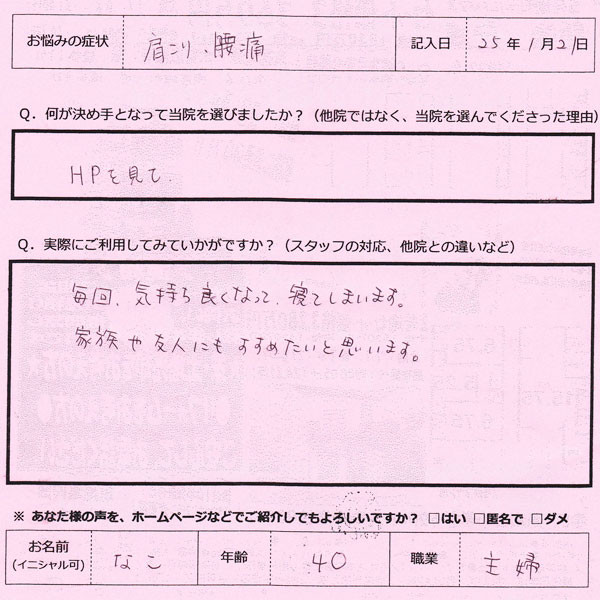 お悩みの症状 肩こり、腰痛 記入日 25年1月21日
Q. 何が決め手となって当院を選びましたか?(他院ではなく、当院を選んでくださった理由)
HPを見て
Q. 実際にご利用してみていかがですか?(スタッフの対応、他院との違いなど)
毎回、気持ち良くなって、寝てしまいます。
家族や友人にもすすめたいと思います。
※ あなた様の声を、ホームページなどでご紹介してもよろしいですか? □はい □匿名で □ダメ
お名前
(イニシャル可) なこ 年齢 40 職業 主婦